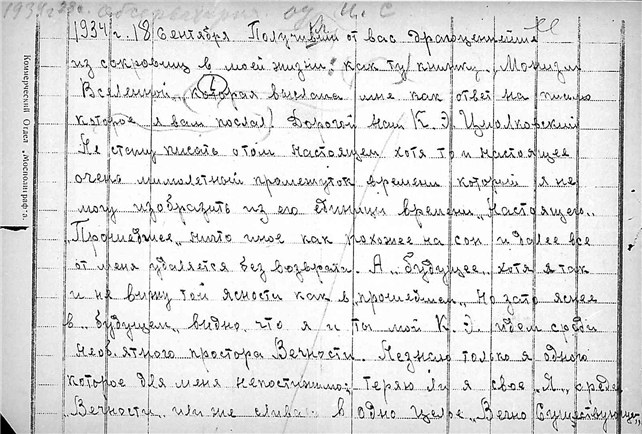 1934 г. 18 Сентября Получивши от вас драгоценнейше
из сокровищ в моей жизни: как ту книжку „Монизм
Вселенной„ которая выслана мне как ответ на письмо
которое я вам послал Дорогой наш К. Э. Циолковский
Не стану писать о том настоящем хотя то и настоящее
очень мимолетный промежуток времени который я не
могу изобразить из его единицы времени „Настоящего„
„Прошедшее„ ничто иное как похожее на сон и далее все
от меня удаляется без возврата. А „будущее„ хотя я так
и не вижу той ясности как в „прошедшем„ Но зато яснее
в „будущем„ видно что я и ты мой К. Э. идем среди
необ'ятного простора Вечности. Незнаю только я одного
которое для меня непостижимо: Теряю ли я свое „Я„ среди
„Вечности„ или же сливаюсь в одно целое „Вечно Существующее„
Коммерческий Отдел „Мосполиграф“а.